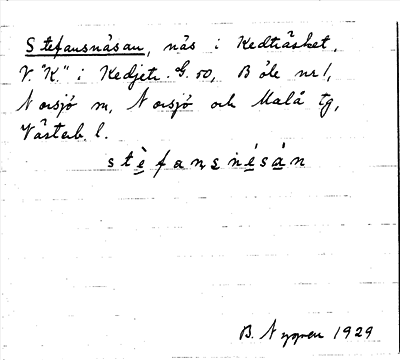 Stefansnäsan, näs i Kedträsket,
V. "K." i Kedjetr. G. 50, Böle nr 1,
Norsjö sn, Norsjö och Malå tg,
Västerb. l.
stèfansnésàn
B. Nygren 1929